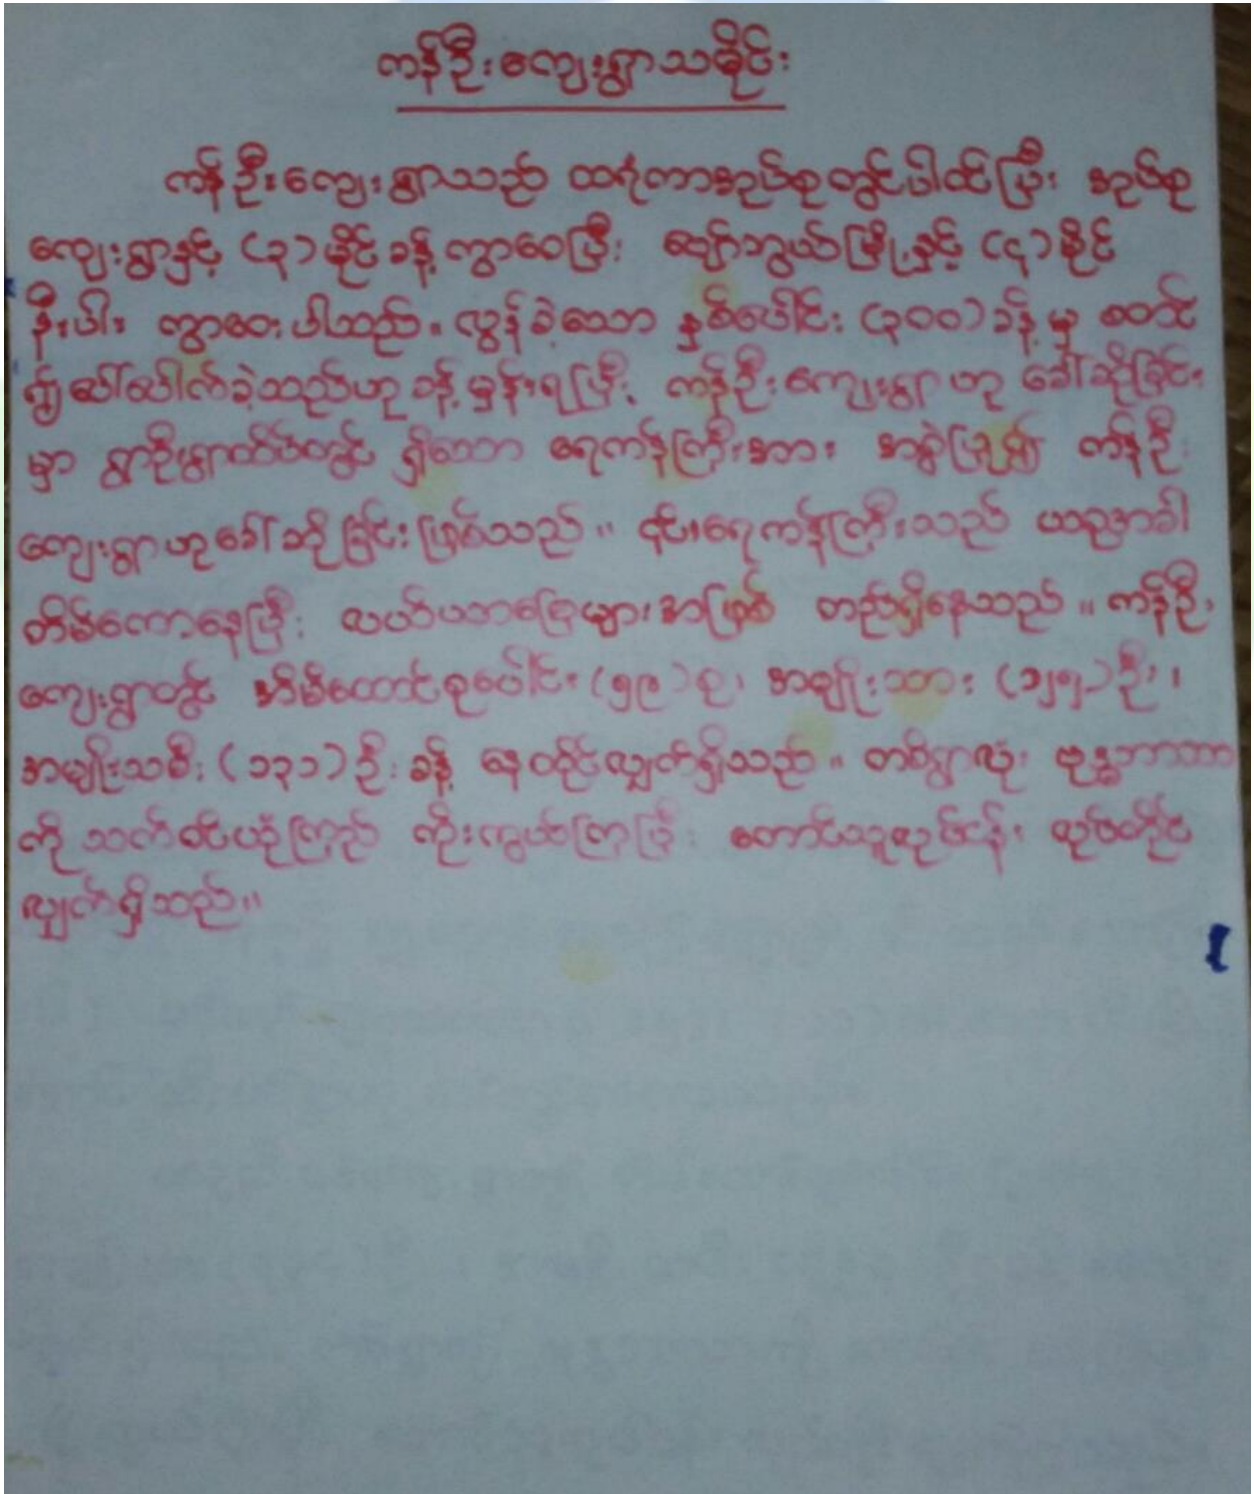 ကန်ဦးကျေးရွာသမိုင်း
ကန်ဦးကျေးရွာသည် ထရံကာအုပ်စုတွင်ပါဝင်ပြီး အုပ်စု
ကျေးရွာနှင့် (၃)မိုင်ခန့် ကွာဝေပြီး ချောဘွယ်မြို့နှင့် (၄)မိုင်
နီးပါး ကွာဝေးပါသည်။ လွန်ခဲ့သော နှစ်ပေါင်း (၃၀၀)ခန့်မှ စတင်
၍ပေါ်ပေါက်ခဲ့သည်ဟု ခန့်မှန်းရပြီး ကန်ဦးကျေးရွာဟု ခေါ်ဆိုခြင်း
မှာ ရွာဦးရွာထိပ်တွင် ရှိသော ရေကန်ကြီးအား အစွဲပြု၍ ကန်ဦး
ကျေးရွာဟုခေါ်ဆိုခြင်းဖြစ်သည်။ ၎င်းရေကန်ကြီးသည် ယခုအခါ
တိမ်ကောနေပြီး လယ်ယာမြေများအဖြစ် တည်ရှိနေသည်။ ကန်ဦး
ကျေးရွာတွင် အိမ်ထောင်စုပေါင်း (၅၉)စု၊ အမျိုးသား ဦး၊
အမျိုးသမီး (၁၃၁)ဦးခန့် နေထိုင်လျှက်ရှိသည်။ တစ်ရွာလုံး ဗုဒ္ဓဘာသာ
ကိုသက်ဝင်ယုံကြည် ကိုးကွယ်ကြပြီး တောင်သူလုပ်ငန်း လုပ်ကိုင်
လျှက်ရှိသည်။